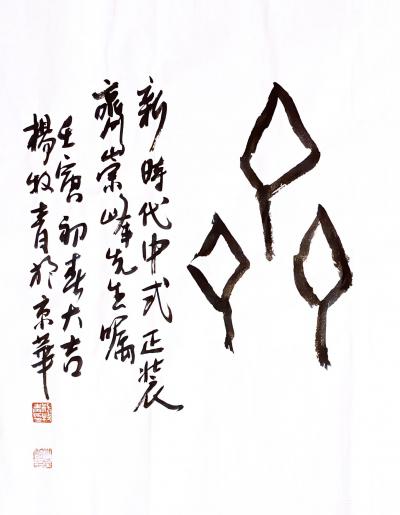 齊
新時代中式正裝
齊崇峰先生嘱
壬寅初春大吉
楊牧青於京華